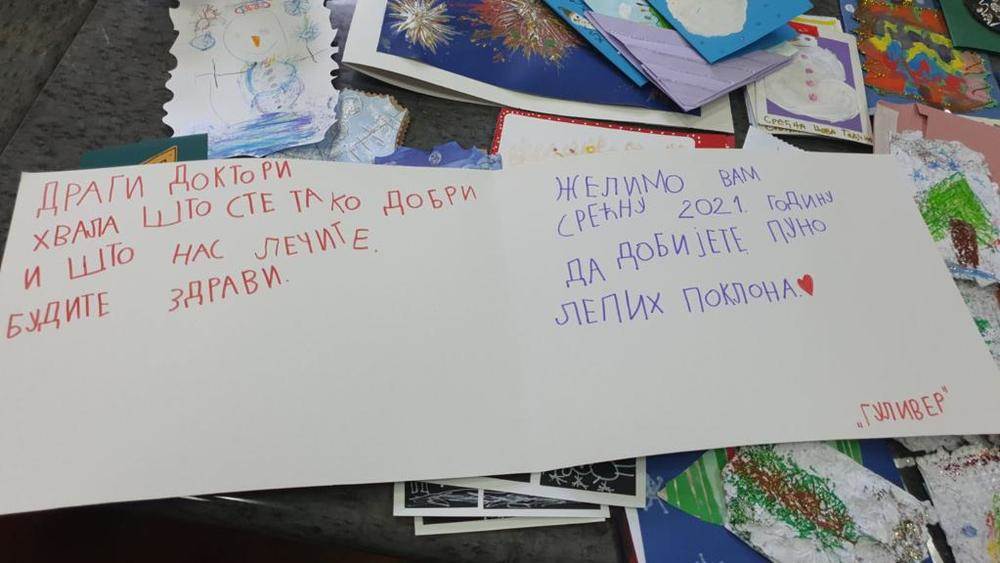 ДРАГИ ДОКТОРИ
ХВАЛА ШТО СТЕ ТАКО ДОБРИ
И ШТО НАС ЛЕЧИТЕ.
БУДИТЕ ЗДРАВИ.
ЖЕЛИМО ВАМ
СРЕЋНУ 2021. ГОДИНУ
ДА ДОБИЈЕТЕ ПУНО
ЛЕПИХ ПОКЛОНА.
„ГУЛИВЕР"
СРЕЋНА НОВА